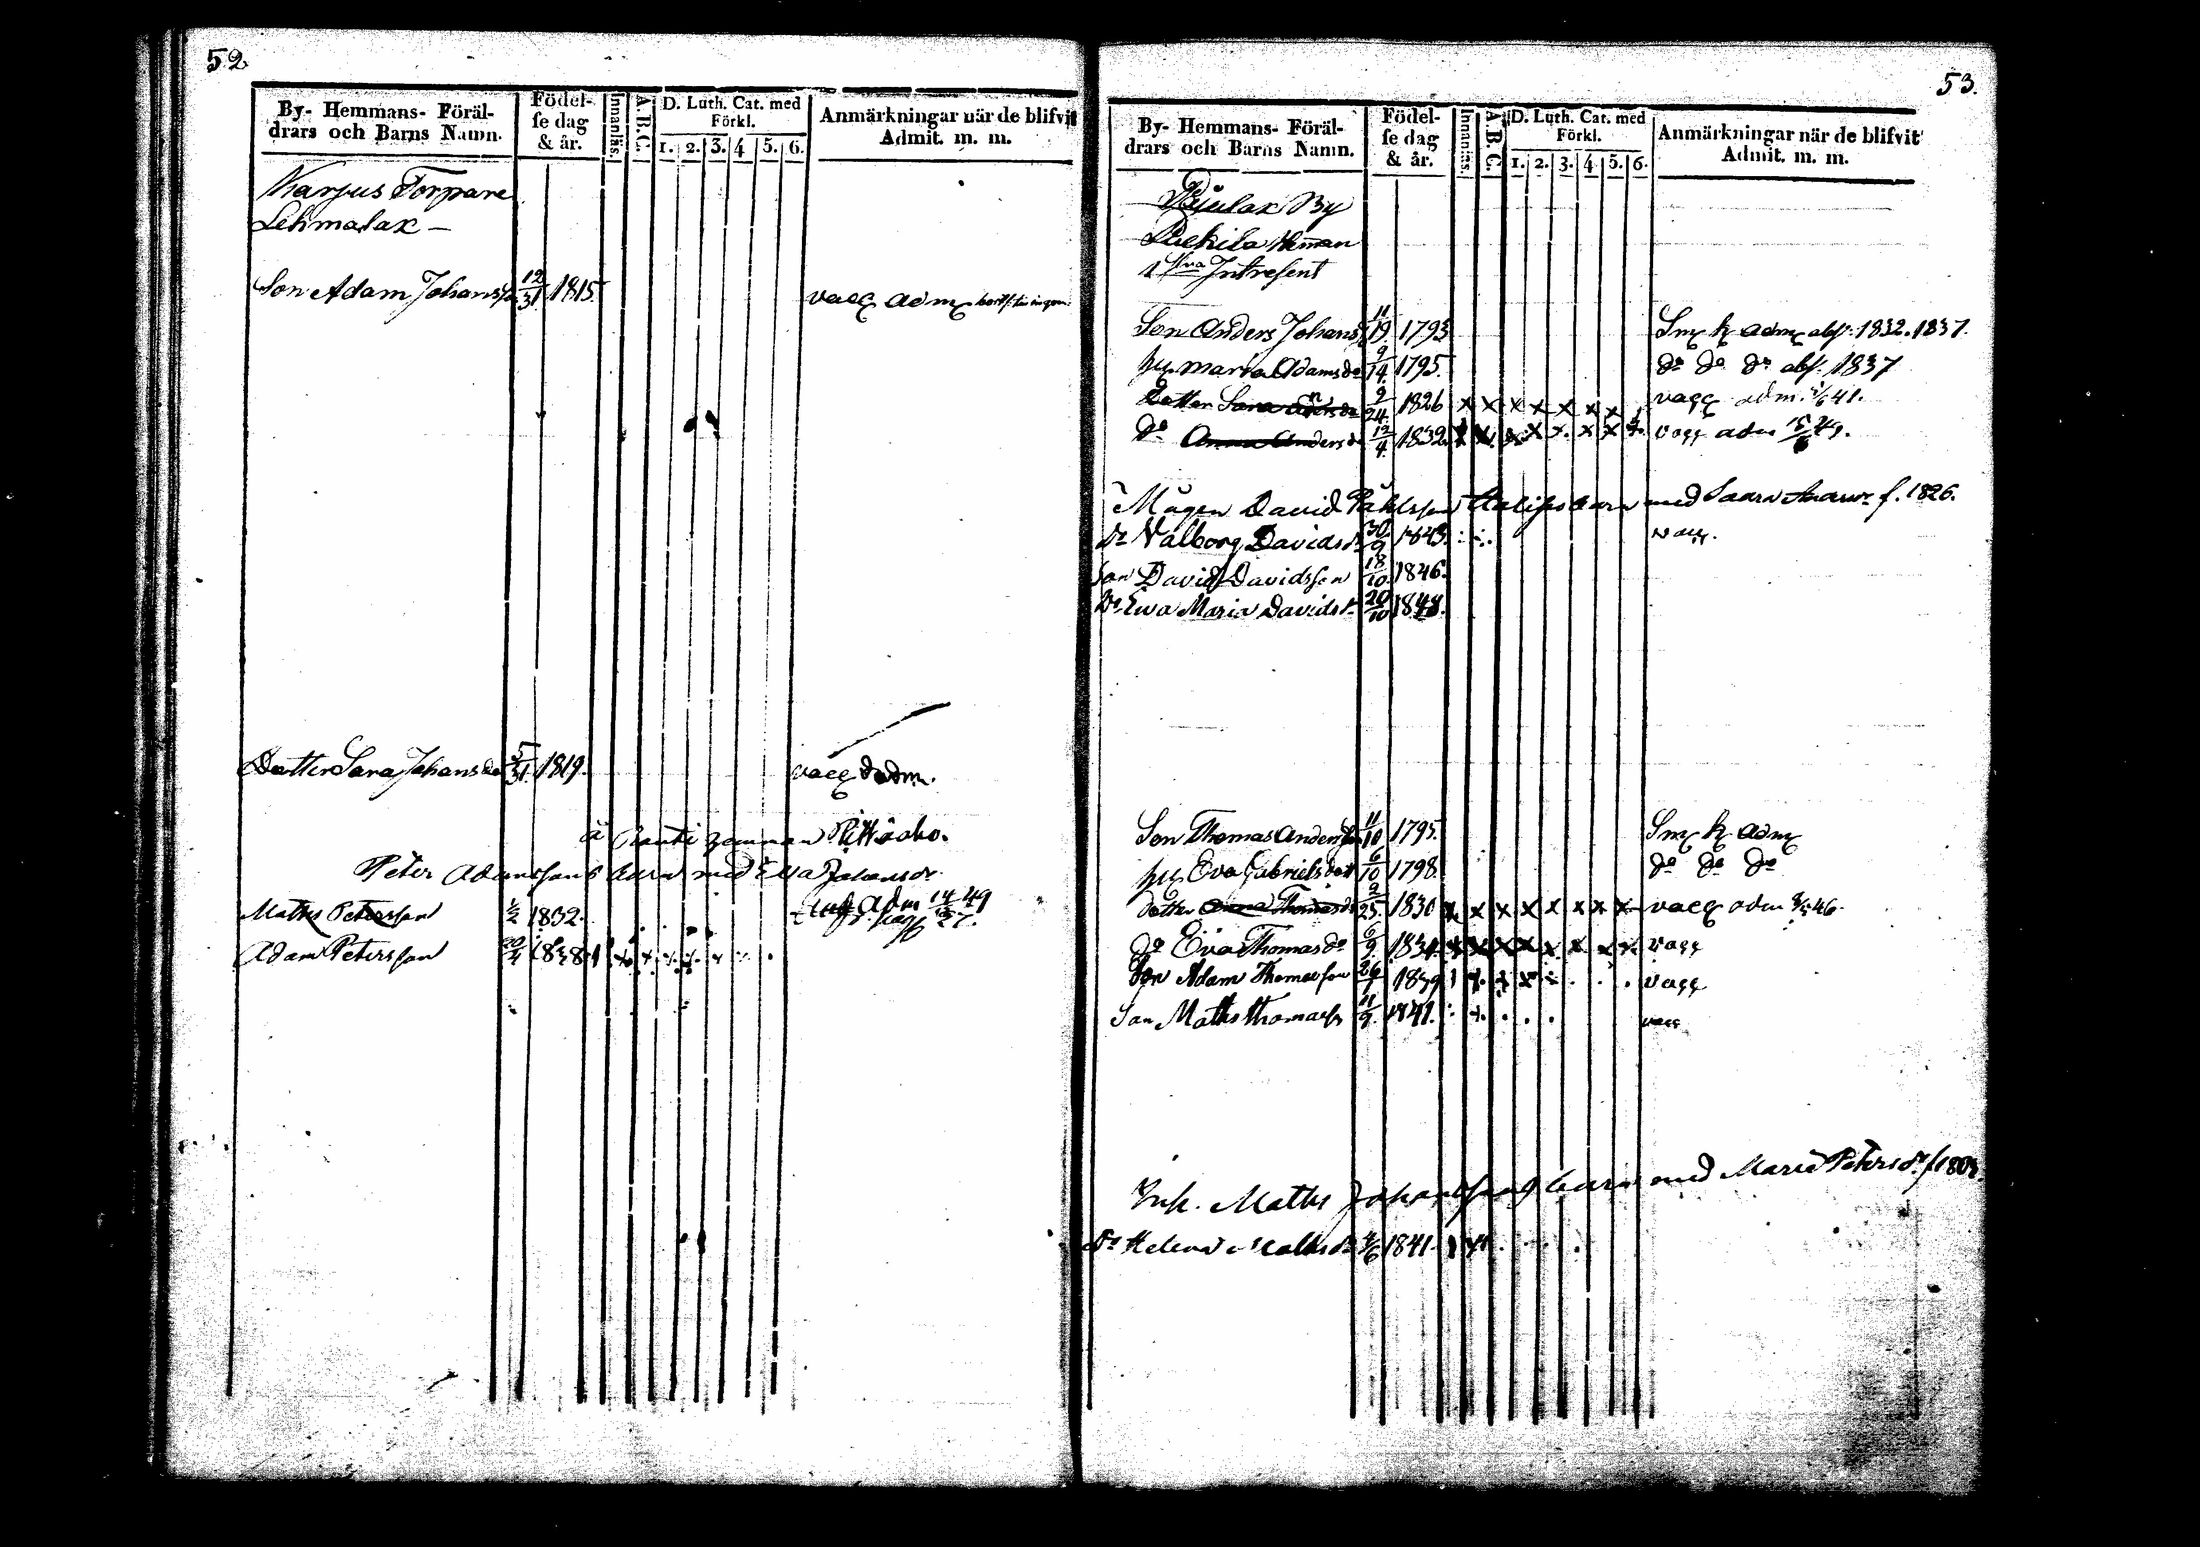 52
By- Hemmans- Föräl-
drars och Barns Namn.
Födel-
se dag
& år.
Innanläs.
A.B.C.
D. Luth. Cat. med
Förkl.
1. 2. 3. 4 5. 6.
Anmärkningar när de blifvit
Admit. m. m.
Karpus Torpare
Lehmalax —
Son Adam Johanss 12/31 1815. vacc adm
Dotter Sara Johansdo 5/31 1819. vacc adm.
å
Peter Adamssons barn med Eva Johansdr
Matts Petersson 1/2 1832. adm 14/ 49
Adam Petersson 20/4 1838
53.
By- Hemmans- Föräl-
drars och Barns Namn.
Födel-
se dag
& år.
Innanläs.
A.B.C.
D. Luth. Cat. med
Förkl.
1. 2. 3. 4 5. 6.
Anmärkningar när de blifvit
Admit. m. m.
By
Heman
1 Intresent
Son Anders Johans 11/19. 1793 Smk k adm abs. 1832. 1837.
hu Maria Adamsdo 9/14. 1795. do do do abs. 1837
Dotter Sara Andersdo 9/24. 1826 x x x x x x x vacc adm. 41.
do Anna Andersdo 12/4. 1832 x x x x x x x vacc adm 49.
Mågen David Påhlsson barn med Saara f. 1826.
Dr Valborg Davidsdr 30/9 1843. vacc.
Son David Davidsson 18/10. 1846.
Dr Eva Maria Davidsdr 20/10 1848.
Son Thomas Andersson 11/10 1795. Smk k adm
hu Eva Gabrielsdott 6/10 1798. do do do
dotter Anna Thomasdo 2/25. 1830 x x x x x x x x vacc adm 46.
do Eva Thomasdo 6/9. 1834 x x x x x x x x vacc
Son Adam Thomasson 1839 vacc
Son Matts Thomass 11/9. 1841. vacc
Enk. Matts Johanssons barn med Maria Petersdr f 180
Dr Helena Mattsdr 4/6 1841.